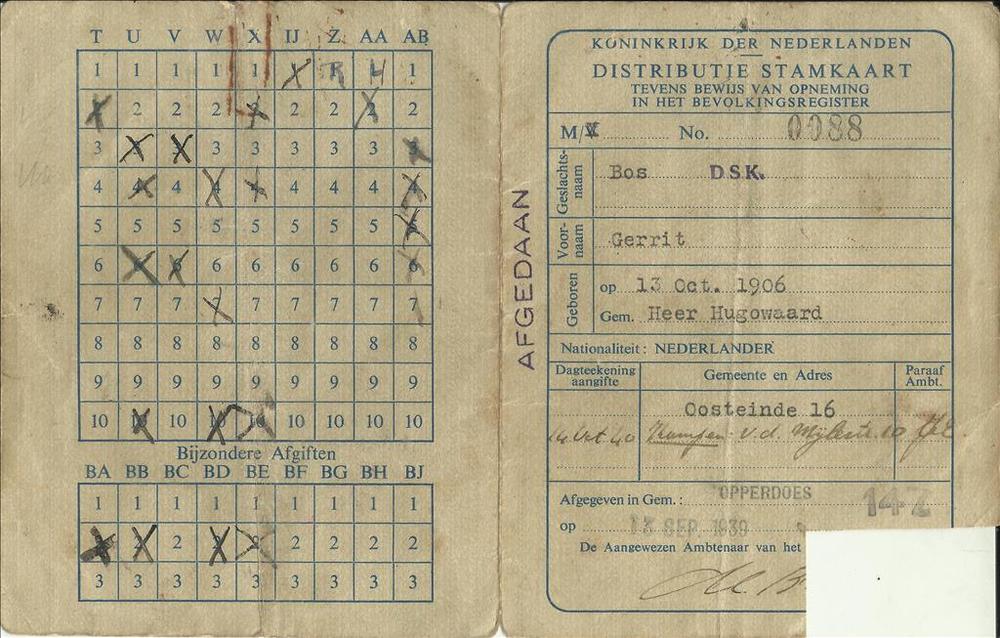 T U V W X IJ Z AA AB
1 1 1 1 1 1 R H 1
2 2 2 2 2 2 2 2 2
3 3 3 3 3 3 3 3 3
4 4 4 4 4 4 4 4 4
5 5 5 5 5 5 5 5 5
6 6 6 6 6 6 6 6 6
7 7 7 7 7 7 7 7 7
8 8 8 8 8 8 8 8 8
9 9 9 9 9 9 9 9 9
10 10 10 10 10 10 10 10 10
Bijzondere Afgiften
BA BB BC BD BE BF BG BH BJ
1 1 1 1 1 1 1 1 1
2 2 2 2 2 2 2 2 2
3 3 3 3 3 3 3 3 3
AFGEDAAN
KONINKRIJK DER NEDERLANDEN
DISTRIBUTIE STAMKAART
TEVENS BEWIJS VAN OPNEMING
IN HET BEVOLKINGSREGISTER
M/V No. 0088
Geslachts-
naam
Bos D.S.K.
Voor-
naam
Gerrit
Geboren
op 13 Oct. 1906
Gem. Heer Hugowaard
Nationaliteit: NEDERLANDER
Dagteekening
aangifte
Gemeente en Adres
Paraaf
Ambt.
Oosteinde 16
v.d.
Afgegeven in Gem.: OPPERDOES 147
op SEP. 1939
De Aangewezen Ambtenaar van het